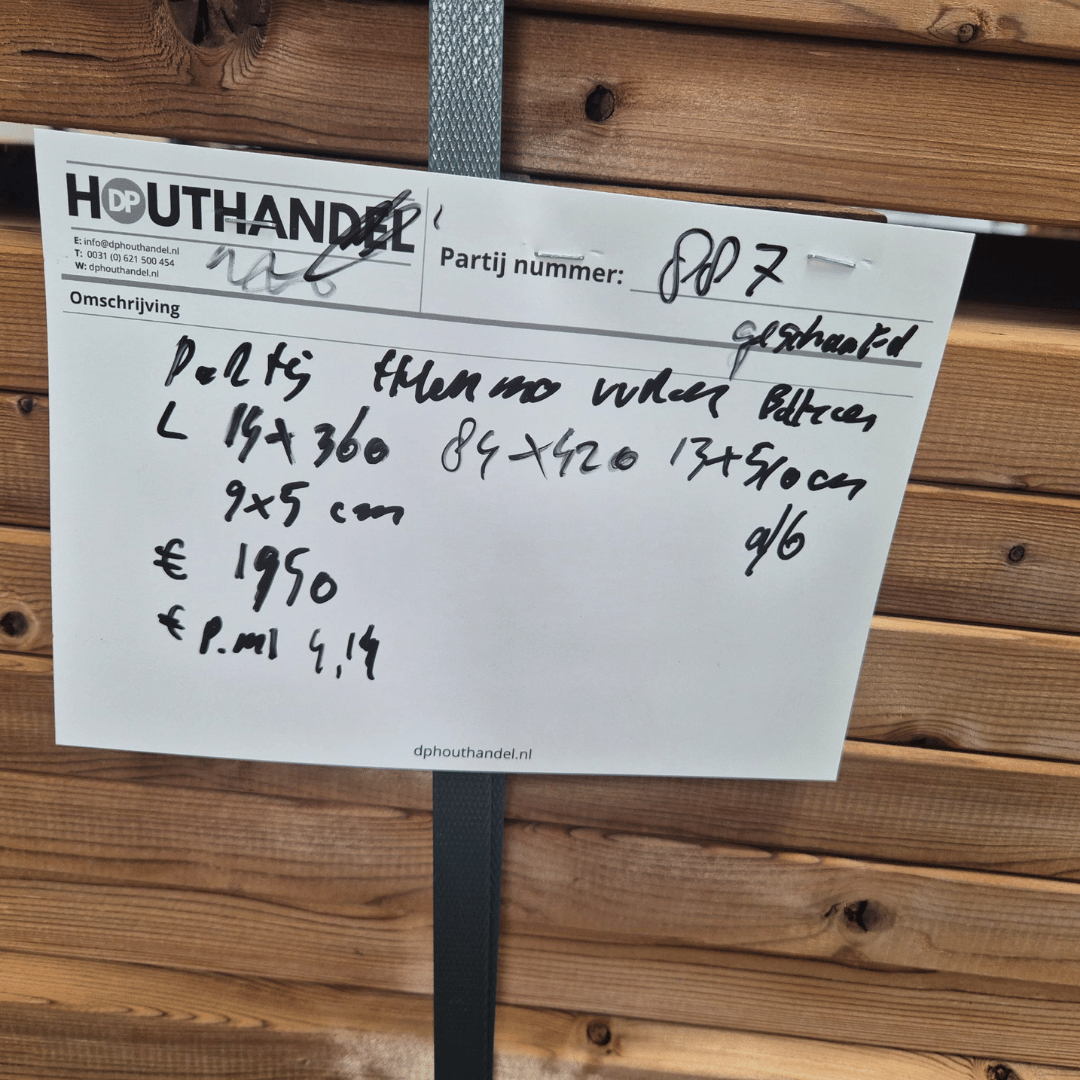 HOUTHANDEL
DP
E: info@dphouthandel.nl
T: 0031 (0) 621 500 454
W: dphouthandel.nl
Partij nummer: 887
Omschrijving
geschaafd
Partij thermo vuren Balken
L 14x360 84x420 13x510 cm
9x5 cm
a/b
€ 1950
€ P.m1 4,14
dphouthandel.nl